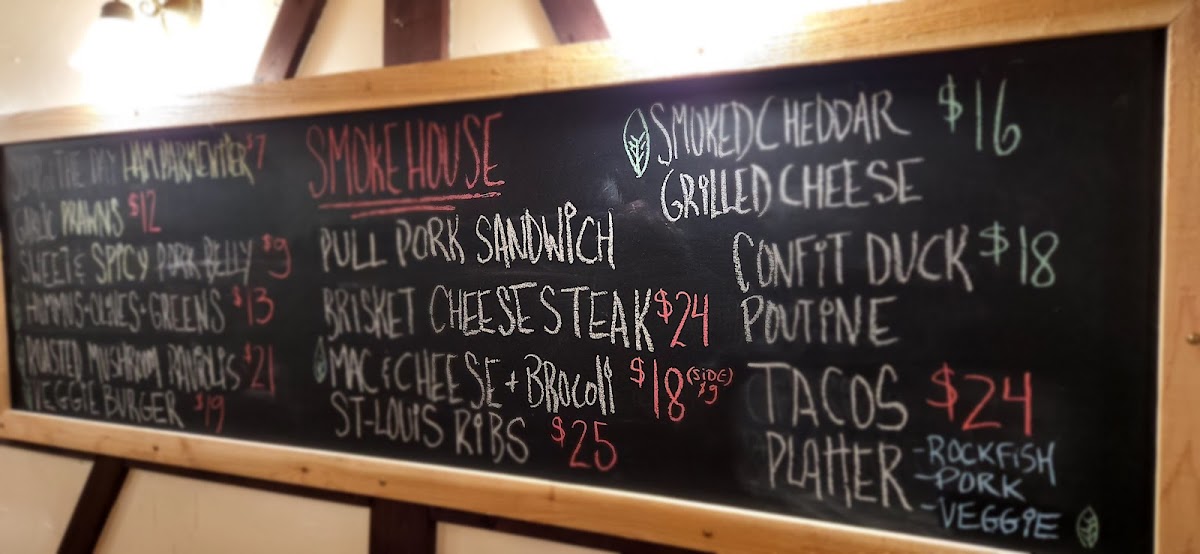 SOUP OF THE DAY HAM PARMENTIER $7
GARLIC PRAWNS $12
SWEET & SPICY PORK BELLY $9
HUMMUS-OLIVES+GREENS $13
ROASTED MUSHROOM RAVIOLIS $21
VEGGIE BURGER $19
SMOKEHOUSE
PULL PORK SANDWICH
BRISKET CHEESESTEAK $24
MAC & CHEESE + BROCOLI $18 (SIDE) $9
ST-LOUIS RIBS $25
SMOKED CHEDDAR $16
GRILLED CHEESE
CONFIT DUCK $18
POUTINE
TACOS $24
PLATTER
-ROCKFISH
-PORK
-VEGGIE